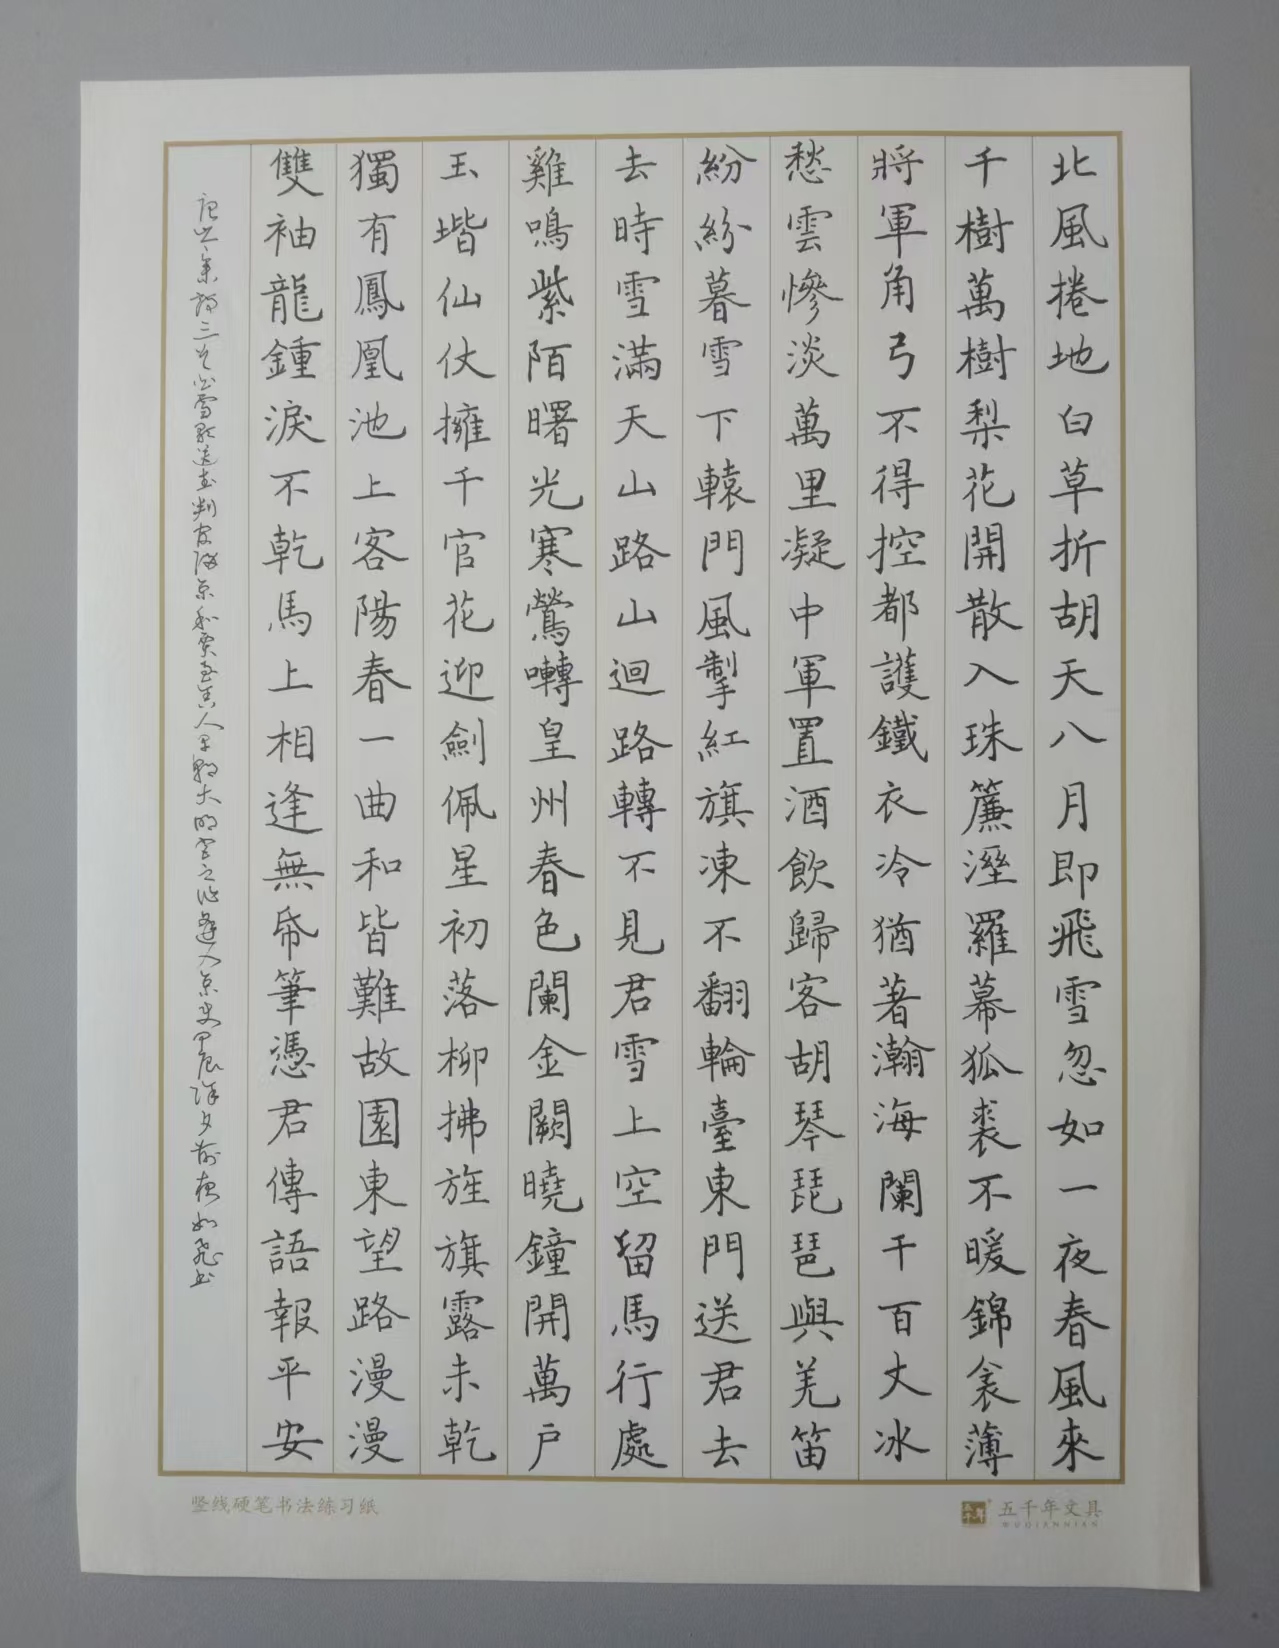 北風捲地白草折胡天八月即飛雪忽如一夜春風來
千樹萬樹梨花開散入珠簾溼羅幕狐裘不暖錦衾薄
將軍角弓不得控都護鐵衣冷猶著瀚海闌干百丈冰
愁雲慘淡萬里凝中軍置酒飲歸客胡琴琵琶與羌笛
紛紛暮雪下轅門風掣紅旗凍不翻輪臺東門送君去
去時雪滿天山路山迴路轉不見君雪上空留馬行處
雞鳴紫陌曙光寒鶯囀皇州春色闌金闕曉鐘開萬戶
玉堦仙仗擁千官花迎劍佩星初落柳拂旌旗露未乾
獨有鳳凰池上客陽春一曲和皆難故園東望路漫漫
雙袖龍鍾淚不乾馬上相逢無帋筆憑君傳語報平安
岑詩三首白雪歌送武判官歸京和賈至舍人早朝大明宮之作逢入京使甲辰除夕前夜如飛書
竖线硬笔书法练习纸
五千年文具
WUQIANNIAN